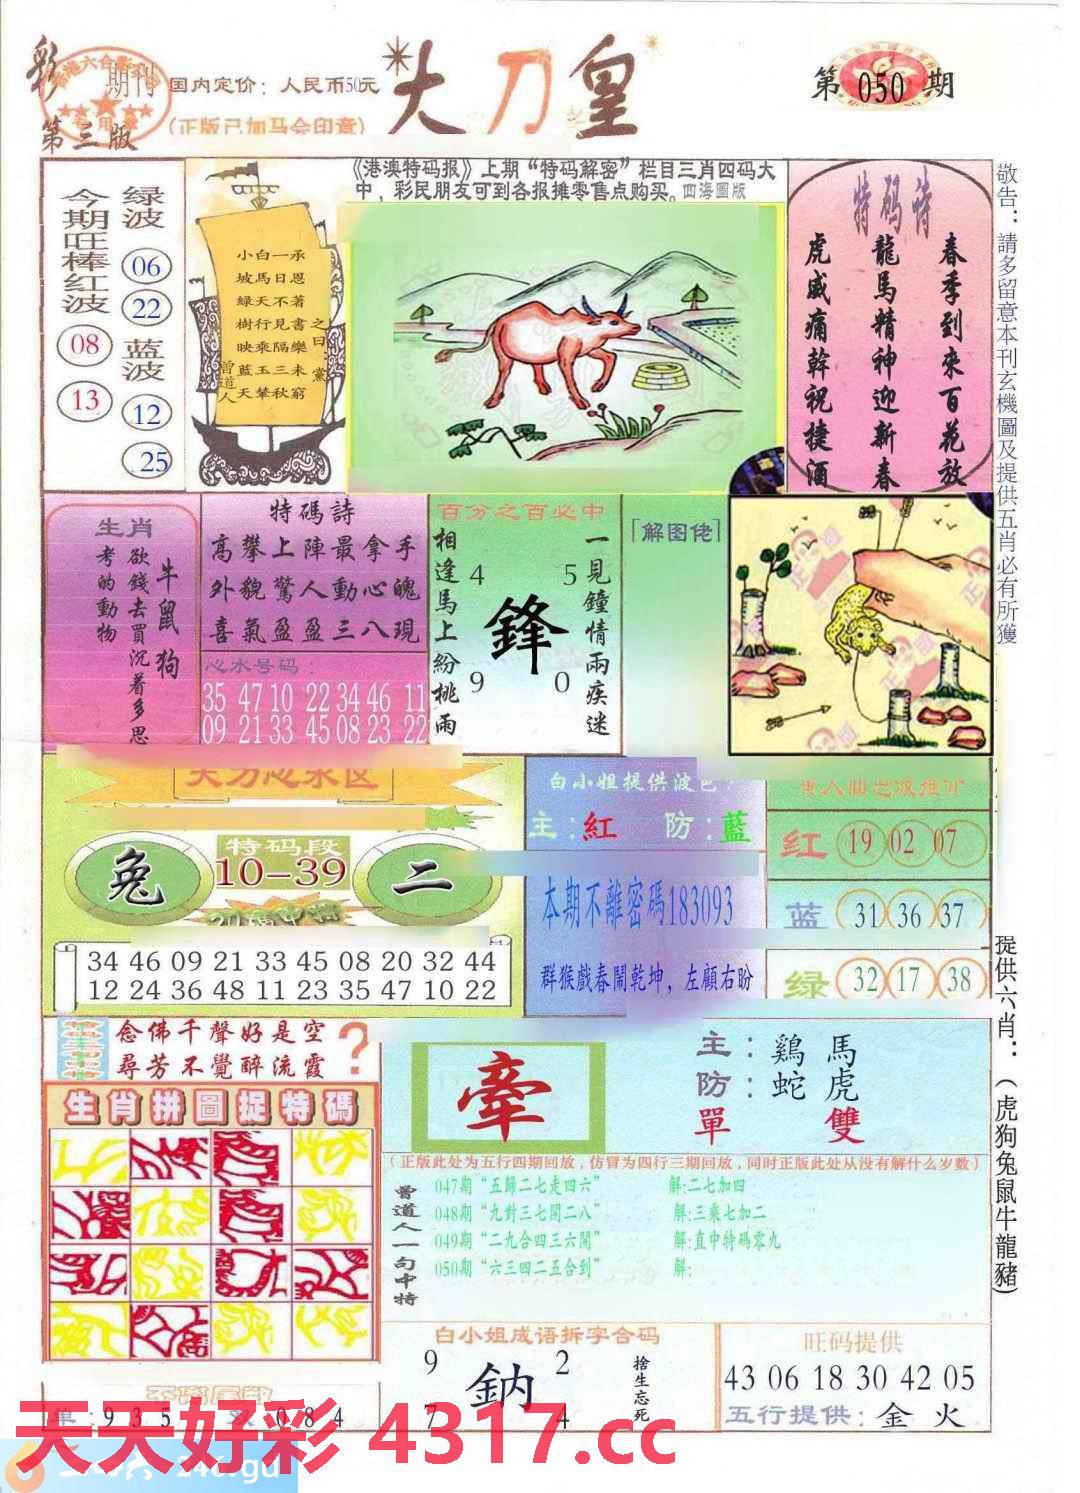 彩 期刊
第三版
国内定价：人民币50元
(正版已加马会印章)
大刀皇
第 050 期
今期旺棒红波
08
13
绿波
06
22
蓝波
12
25
承恩著書樂未窮
一日不見隔三秋
白馬天行乘玉輦
小坡緑樹映藍天
之曰：黨
曾道人
《港澳特码报》上期“特码解密”栏目三肖四码大
中，彩民朋友可到各报摊零售点购买。四海圖版
特码诗
春季到來百花放
龍馬精神迎新春
虎威痛幹祝捷酒
敬告：請多留意本刊玄機圖及提供五肖必有所獲
生肖
牛鼠狗
欲錢去買沉着多思
考的動物
特碼詩
高攀上陣最拿手
外貌驚人動心魄
喜氣盈盈三八現
心水号码：
35 47 10 22 34 46 11
09 21 33 45 08 23 22
百分之百必中
一見鐘情兩疾迷
4 5
鋒
9 0
相逢馬上紛桃雨
「解图佬」
特码段
兔
10-39
二
34 46 09 21 33 45 08 20 32 44
12 24 36 48 11 23 35 47 10 22
白小姐提供波色
主:紅 防:藍
本期不離密碼183093
群猴戲春鬧乾坤，左顧右盼
红 19 02 07
蓝 31 36 37
绿 32 17 38
提供六肖：(虎狗兔鼠牛龍豬)
念佛千聲好是空
尋芳不覺醉流霞
?
生肖拼圖捉特碼
牽
主：鷄 馬
防：蛇 虎
單 雙
(正版此处为五行四期回放，仿冒为四行三期回放，同时正版此处从没有解什么岁数)
曾道人一句中特
047期“五歸二七走四六” 解:二七加四
048期“九對三七開二八” 解:三乘七加二
049期“二九合四三六開” 解:直中特碼零九
050期“六三四二五合到” 解:
白小姐成语拆字合码
9 2
鈉
7 4
捨生忘死
旺码提供
43 06 18 30 42 05
五行提供：金 火
单:935 084
天天好彩 4317.cc
246.gd